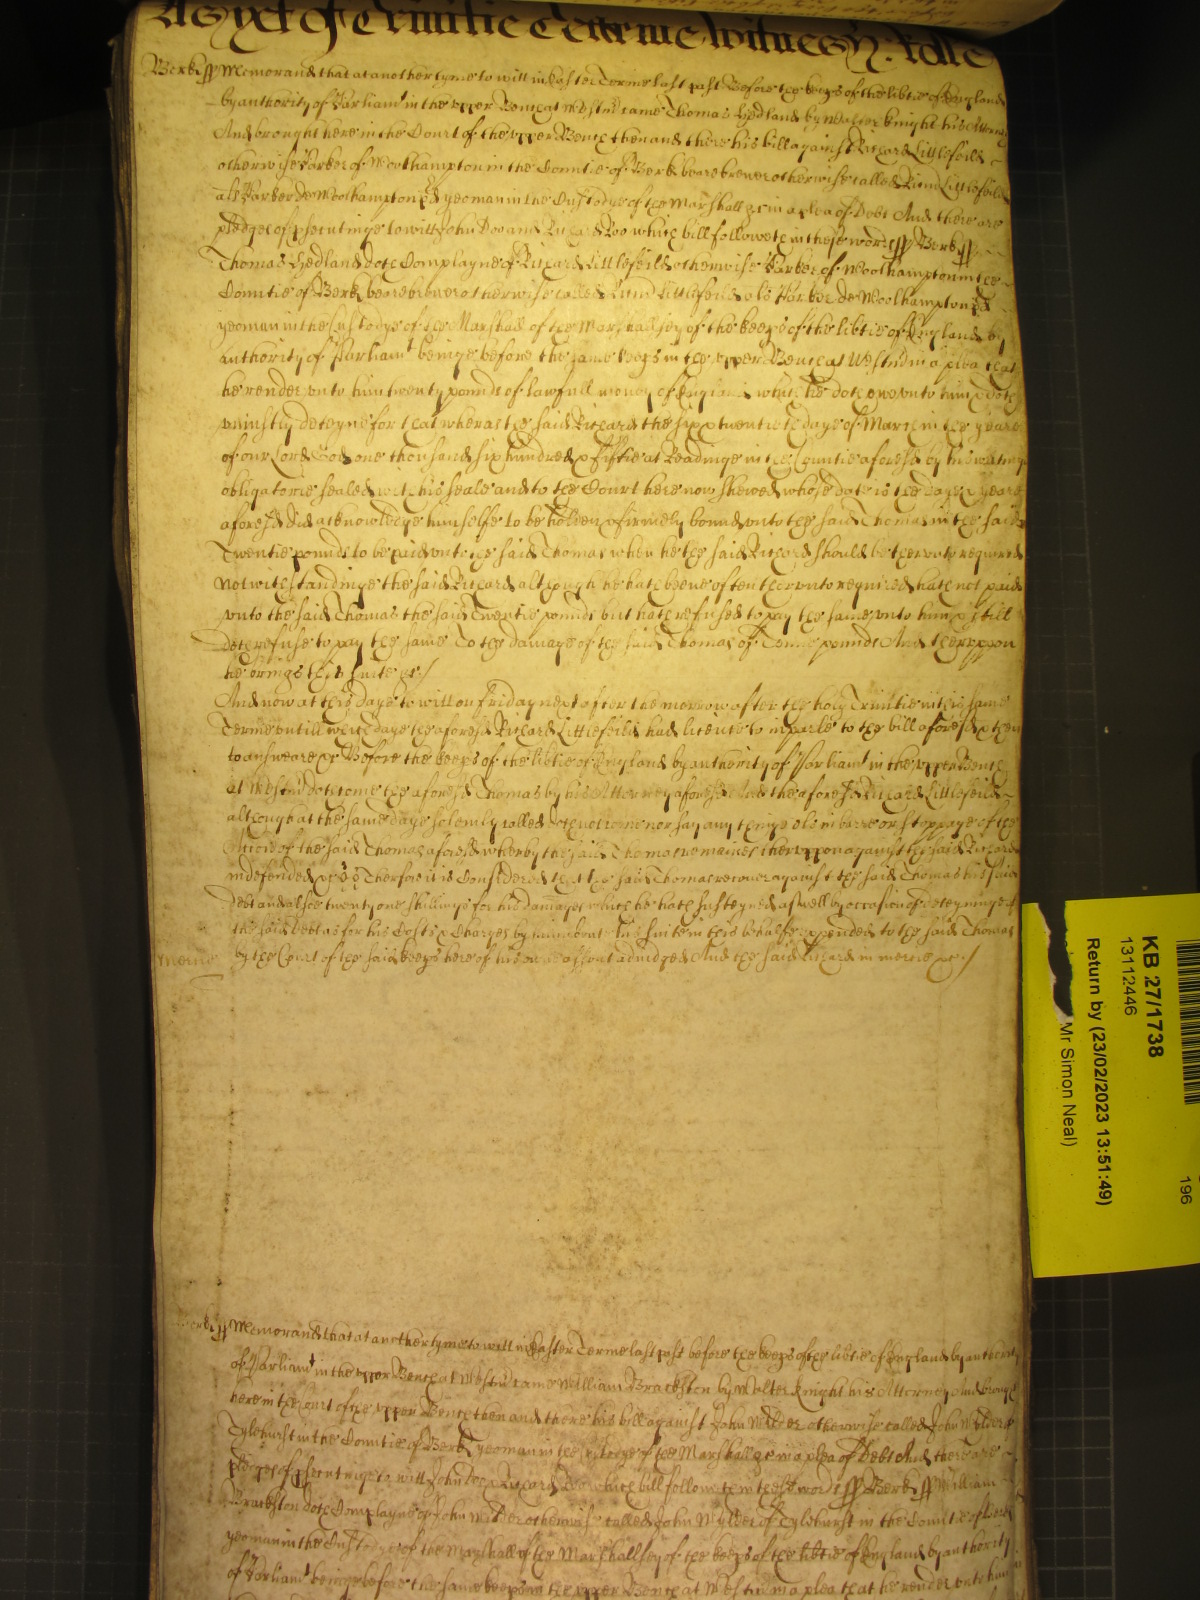 As yet of Trinitie Terme witnes H: Rolle
Berks ss Memorand that at another tyme to witt in Easter Terme last past Before the keeps of the libtie of England
by authority of Parliamt in the upper Bench at Westm came Thomas Hedland by Walter Knight his Attorney
And brought here in the Court of the upper Bench then and there his bill against Richard Littlefeild
otherwise Parker of Woolhampton in the Countie of Berk beare brewer otherwise called Ricum Littlefeild
als Parker de Woolhampton pd yeoman in the Custodye of the Marshall &c in a plea of Debt And there are
pledges of psecutinge to witt John Doo and Richard Roo which bill followeth in these words ss Berk ss
Thomas Hedland doth Complayne of Richard Littlefeild otherwise Parker of Woolhampton in the
Countie of Berk beare brewer otherwise called Ricum Littlefeild als Parker de Woolhampton pd
yeoman in the Custodye of the Marshall of the Marshallsey of the keeps of the libtie of England by
authority of Parliamt beinge before the same keeps in the upper Bench at Westm in a plea that
he render unto him twenty pounds of lawfull money of England which he doth owe unto him & doth
uniustly deteyne for that wheras the said Richard the six & twentieth daye of March in the yeare
of our Lord God one thousand six hundred & fiftie at Readinge in the Countie aforesd by his writinge
obligatorie sealed with his seale and to the Court here now shewed whose date is the daye & yeare
aforesd did acknowledge himselfe to be holden & firmely bound unto the said Thomas in the said
Twentie pounds to be paid unto the said Thomas when he the said Richard should be therunto required
Notwithstandinge the said Richard although he hath beene often therunto required hath not paid
unto the said Thomas the said Twentie pounds but hath refused to pay the same unto him & still
doth refuse to pay the same To the damage of the said Thomas of Tenne pounds And therupon
he brings this suite &c /
And now at this daye to witt on friday next after the morrow after the holy Trinitie in this same
Terme untill which daye the aforesd Richard Littlefeild had licence to imparle to the bill aforesd & then
to answeare &c Before the keeps of the libtie of England by authority of Parliamt in the upper Bench
at Westm doth come the aforesd Thomas by his Attorney aforesd And the aforesd Richard Littlefeild
although at the same daye solemly called doth not come nor say any thinge in barre or stoppage of the
accion of the said Thomas aforesd wherby the said Thomas remaines therupon against the said Richard
indefended &c Therfore it is Considered that the said Thomas recover against the said Thomas his said
debt and alsoe twenty one shillings for his damages which he hath susteyned aswell by occasion of deteyninge of
the said debt as for his Costs & Charges by him about his suite in this behalfe expended to the said Thomas
mercie by the Court of the said keeps here of his owne assent adiudged And the said Richard in mercie &c /
Berk ss Memorand that at another tyme to witt in Easter Terme last past before the keeps of the libtie of England by authority
of Parliamt in the upper Bench at Westm came William Brackston by Walter Knight his Attorney And brought
here in the Court of the upper Bench then and there his bill against John Wilder otherwise called John Wylder of
Tylehurst in the Countie of Berk yeoman in the Custodye of the Marshall &c in a plea of Debt And there are
pledges of psecutinge to witt John Doo & Richard Roo which bill followeth in these words ss Berk ss William
Brackston doth Complayne of John Wilder otherwise called John Wylder of Tylehurst in the Countie of Berk
yeoman in the Custodye of the Marshall of the Marshallsey of the keeps of the libtie of England by authority
of Parliamt beinge before the same keeps in the upper Bench at Westm in a plea that he render unto him
KB 27/1738
13112446
Return by (23/02/2023 13:51:49)
Mr Simon Neal)
196